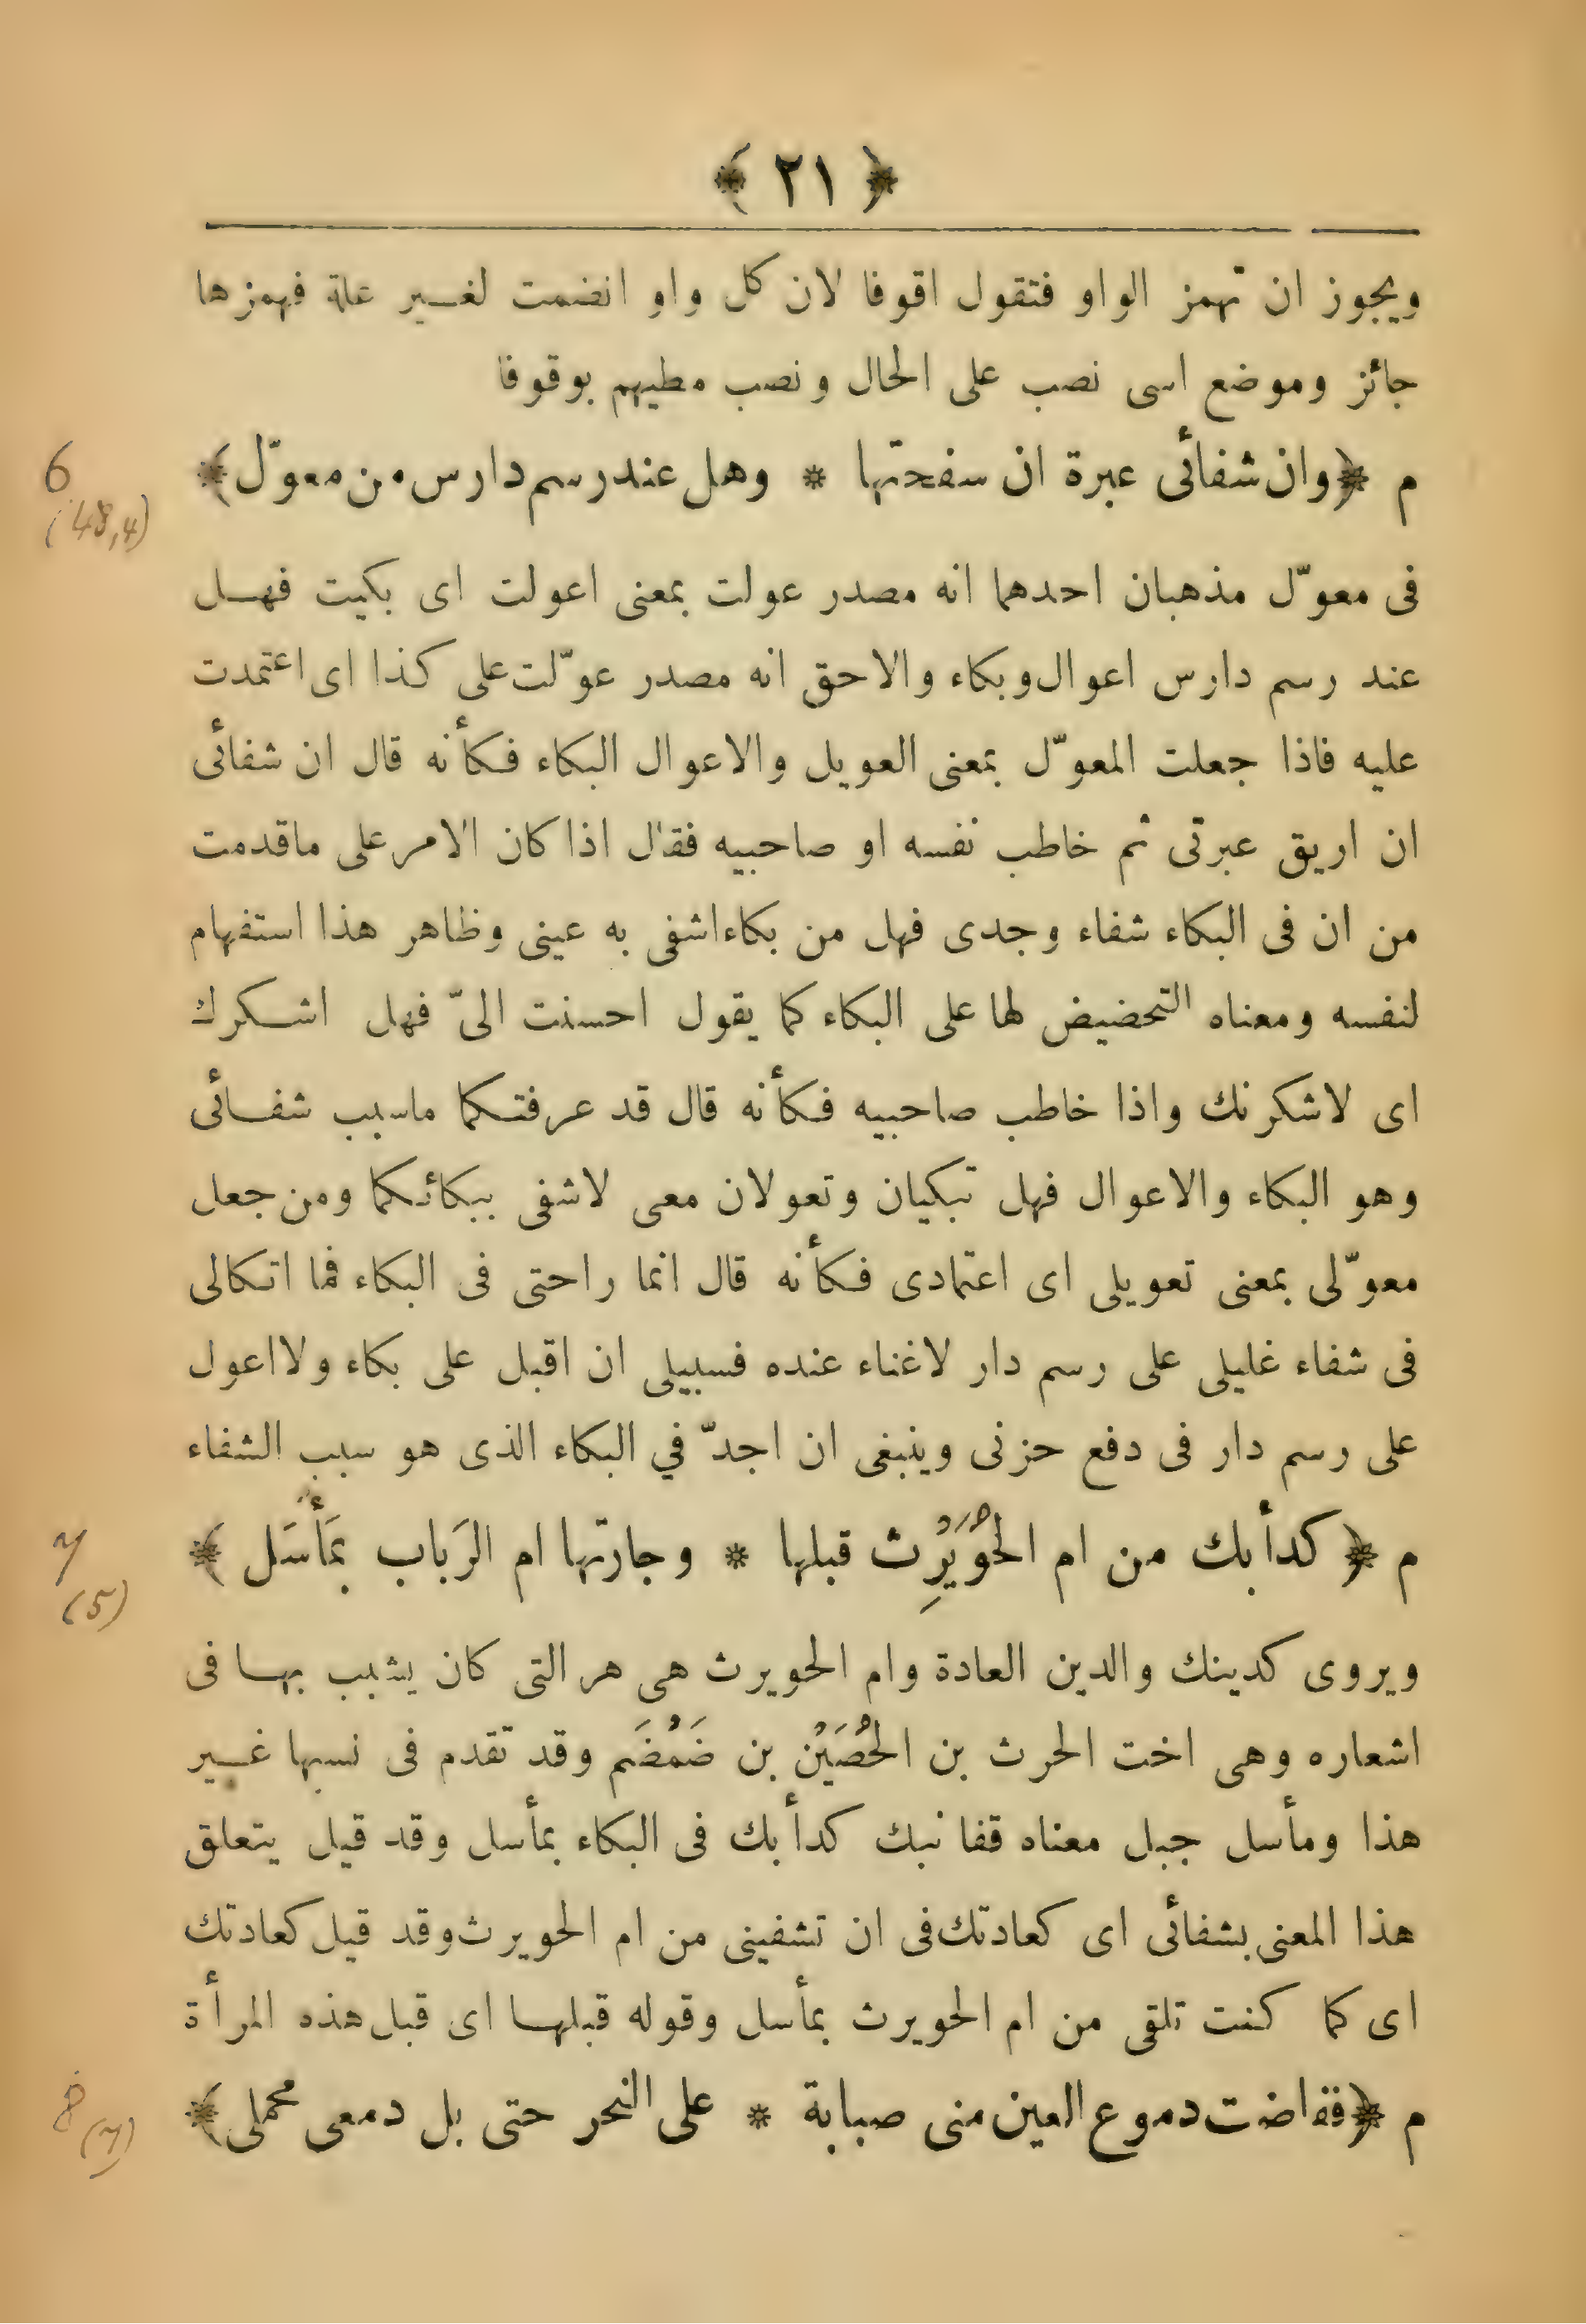 ﴿ ٢١ ﴾
ويجوز ان تهمز الواو فتقول اقوفا لان كل واو انضمت لغير علة فهمزها
جائز وموضع اسى نصب على الحال ونصب مطيهم بوقوفا
م ﴿ وان شفائى عبرة ان سفحتها * وهل عند رسم دارس من معوّل ﴾
6
(48,4)
فى معوّل مذهبان احدهما انه مصدر عولت بمعنى اعولت اى بكيت فهل
عند رسم دارس اعوال وبكاء والاحق انه مصدر عوّلت على كذا اى اعتمدت
عليه فاذا جعلت المعوّل بمعنى العويل والاعوال البكاء فكأنه قال ان شفائى
ان اريق عبرتى ثم خاطب نفسه او صاحبيه فقال اذا كان الامر على ماقدمت
من ان فى البكاء شفاء وجدى فهل من بكاء اشفى به عينى وظاهر هذا استفهام
لنفسه ومعناه التحضيض لها على البكاء كما يقول احسنت الىّ فهل اشكرك
اى لاشكرنك واذا خاطب صاحبيه فكأنه قال قد عرفتكما ماسبب شفائى
وهو البكاء والاعوال فهل تبكيان وتعولان معى لاشفى ببكائكما ومن جعل
معوّلى بمعنى تعويلى اى اعتمادى فكأنه قال انما راحتى فى البكاء فما اتكالى
فى شفاء غليلى على رسم دار لاغناء عنده فسبيلى ان اقبل على بكاء ولااعول
على رسم دار فى دفع حزنى وينبغى ان اجدّ في البكاء الذى هو سبب الشفاء
م ﴿ كدأبك من ام الحُوَيْرِث قبلها * وجارتها ام الرَباب بمَأْسَل ﴾
7
(5)
ويروى كدينك والدين العادة وام الحويرث هى هر التى كان يشبب بها فى
اشعاره وهى اخت الحرث بن الحُصَيْن بن ضَمْضَم وقد تقدم فى نسبها غير
هذا ومأسل جبل معناه قفا نبك كدأبك فى البكاء بمأسل وقد قيل يتعلق
هذا المعنى بشفائى اى كعادتك فى ان تشفينى من ام الحويرث وقد قيل كعادتك
اى كما كنت تلقى من ام الحويرث بمأسل وقوله قبلها اى قبل هذه المرأة
م ﴿ ففاضت دموع العين منى صبابة * على النحر حتى بل دمعى محملى ﴾
8
(7)